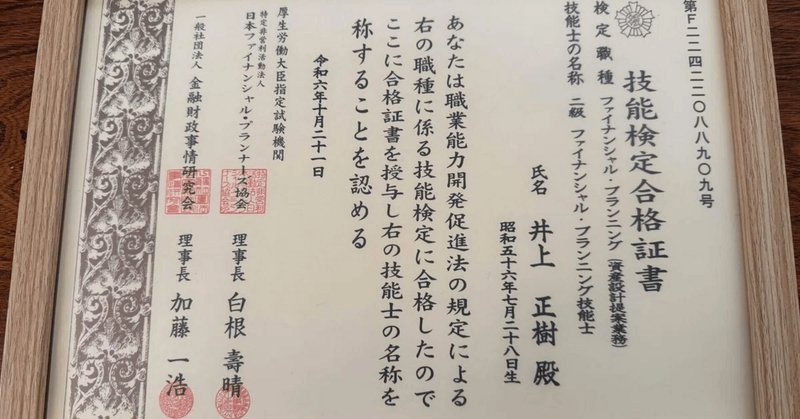 第F二二四二二〇八八九〇九号
技能検定合格証書
検定職種 ファイナンシャル・プランニング(資産設計提案業務)
技能士の名称 二級 ファイナンシャル・プランニング技能士
氏名 井上 正樹 殿
昭和五十六年七月二十八日生
あなたは職業能力開発促進法の規定による
右の職種に係る技能検定に合格したので
ここに合格証書を授与し右の技能士の名称を
称することを認める
令和六年十月二十一日
厚生労働大臣指定試験機関
特定非営利活動法人
日本ファイナンシャル・プランナーズ協会 理事長 白根 壽晴
一般社団法人 金融財政事情研究会 理事長 加藤 一浩